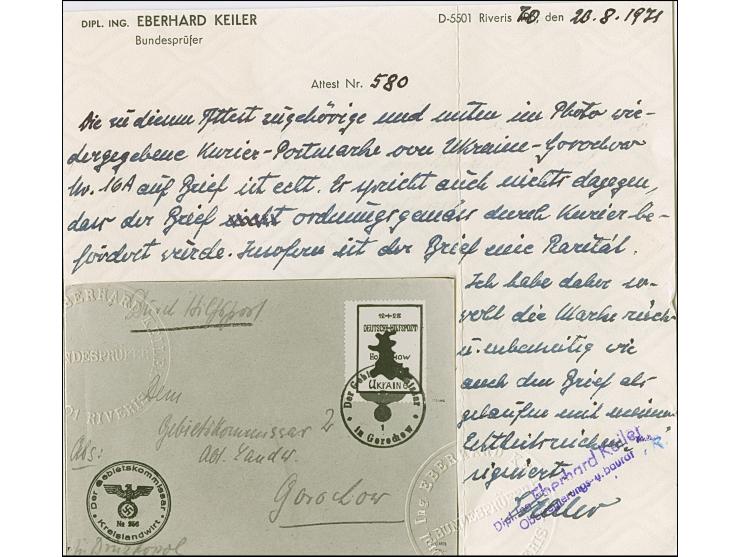 DIPL. ING. EBERHARD KEILER
Bundesprüfer
D-5501 Riveris 70, den 20.8.1971
Attest Nr. 580
Die zu diesem Attest zugehörige und unten im Photo wie-
dergegebene Kurier-Postmarke von Ukraine-Gorochow
Nr. 16A auf Brief ist echt. Es spricht auch nichts dagegen,
dass der Brief ordnungsgemäss durch Kurier be-
fördert wurde. Insofern ist der Brief eine Rarität.
Ich habe daher so-
wohl die Marke rück-
u. unbeseitig wie
auch den Brief als
gelaufen mit meinem
Echtheitszeichen
signiert.
Keiler
Eberhard Keiler
Dipl.-Ing.
Oberregierungs-u.baurat
EBERHARD KEILER
BUNDESPRÜFER
5501 RIVERIS
Durch Hilfspost
12+28
DEUTSCHE HILFSPOST
UKRAINE
Der Gebietskommissar
1
in Gorochow
Dem
Gebietskommissar
Abt. Landw.
Gorochow
Abs:
Der Gebietskommissar
№ 256
Kreislandwirt
Ing EBERHARD
BUNDESPRÜFER